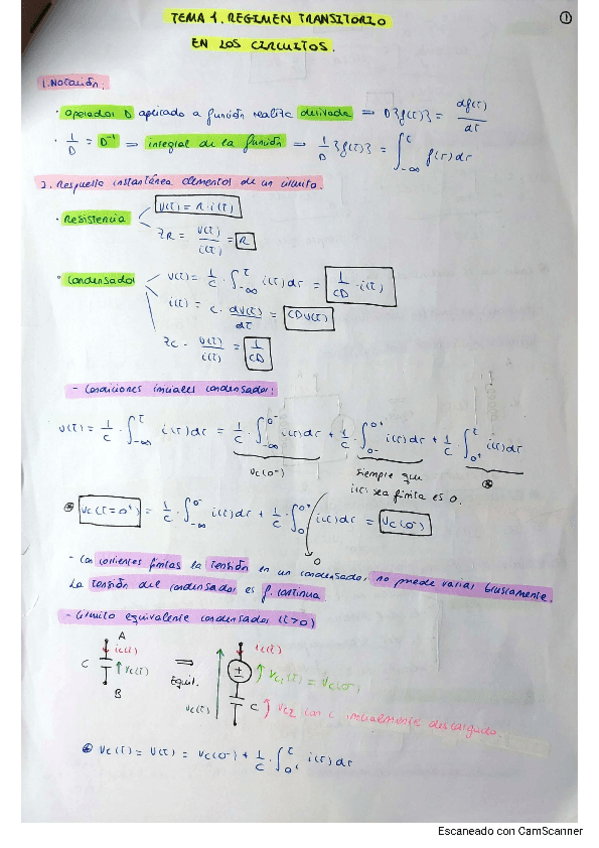 TEMA 1. REGIMEN TRANSITORIO
EN LOS CIRCUITOS.
①
1. Notación:
· operador D aplicado a función realiza derivada ⇒ D{f(t)} = df(t)/dt
· 1/D = D⁻¹ ⇒ integral de la función ⇒ 1/D {f(t)} = ∫_{-∞}^{t} f(τ)dτ
2. Respuesta instantánea elementos de un circuito.
· Resistencia
v(t) = R·i(t)
Z_R = v(t)/i(t) = R
· Condensador
v(t) = 1/C · ∫_{-∞}^{t} i(τ)dτ = 1/CD · i(t)
i(t) = C · dv(t)/dt = CDv(t)
Z_C = v(t)/i(t) = 1/CD
- Condiciones iniciales condensador:
v(t) = 1/C · ∫_{-∞}^{t} i(τ)dτ = 1/C · ∫_{-∞}^{0⁻} i(τ)dτ + 1/C · ∫_{0⁻}^{0⁺} i(τ)dτ + 1/C · ∫_{0⁺}^{t} i(τ)dτ
v_C(0⁻)
siempre que
i(t) sea finita es 0.
⊛
⊛ v_C(t=0⁺) = 1/C · ∫_{-∞}^{0⁻} i(τ)dτ + 1/C · ∫_{0⁻}^{0⁺} i(τ)dτ = v_C(0⁻)
0
- Con corrientes finitas la tensión en un condensador no puede variar bruscamente.
La tensión del condensador es f. continua.
- Circuito equivalente condensador (t>0)
A
i_C(t)
C
v_C(t)
B
⇒
Equil.
v_C(t)
i_C(t)
v_{C1}(t) = v_C(0⁻)
C
v_{C2} con C inicialmente descargado.
⊛ v_C(t) = v(t) = v_C(0⁻) + 1/C · ∫_{0⁺}^{t} i(τ)dτ
Escaneado con CamScanner